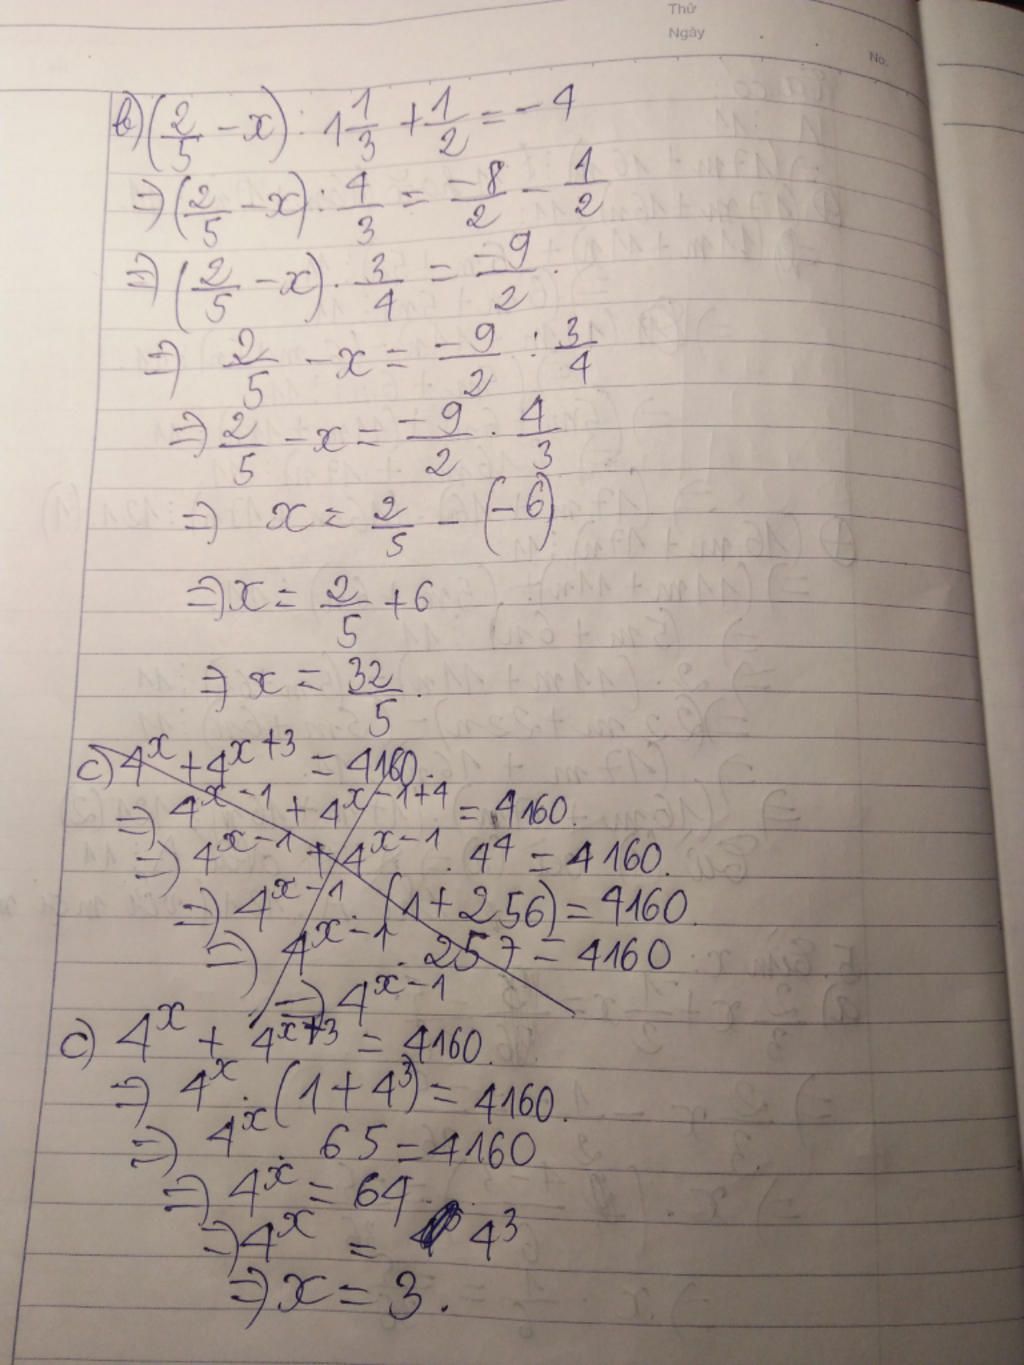 Thứ
Ngày
No.
b) (2/5 - x) : 1 1/3 + 1/2 = -4
=> (2/5 - x) : 4/3 = -8/2 - 1/2
=> (2/5 - x) . 3/4 = -9/2.
=> 2/5 - x = -9/2 : 3/4
=> 2/5 - x = -9/2 . 4/3
=> x = 2/5 - (-6)
=> x = 2/5 + 6
=> x = 32/5.
c) 4^x + 4^(x+3) = 4160.
=> 4^(x-1) + 4^(x-1+4) = 4160.
=> 4^(x-1) + 4^(x-1) . 4^4 = 4160.
=> 4^(x-1) . (1 + 256) = 4160
=> 4^(x-1) . 257 = 4160
=> 4^(x-1)
c) 4^x + 4^(x+3) = 4160.
=> 4^x . (1 + 4^3) = 4160.
=> 4^x . 65 = 4160
=> 4^x = 64.
=> 4^x = 4^3
=> x = 3.